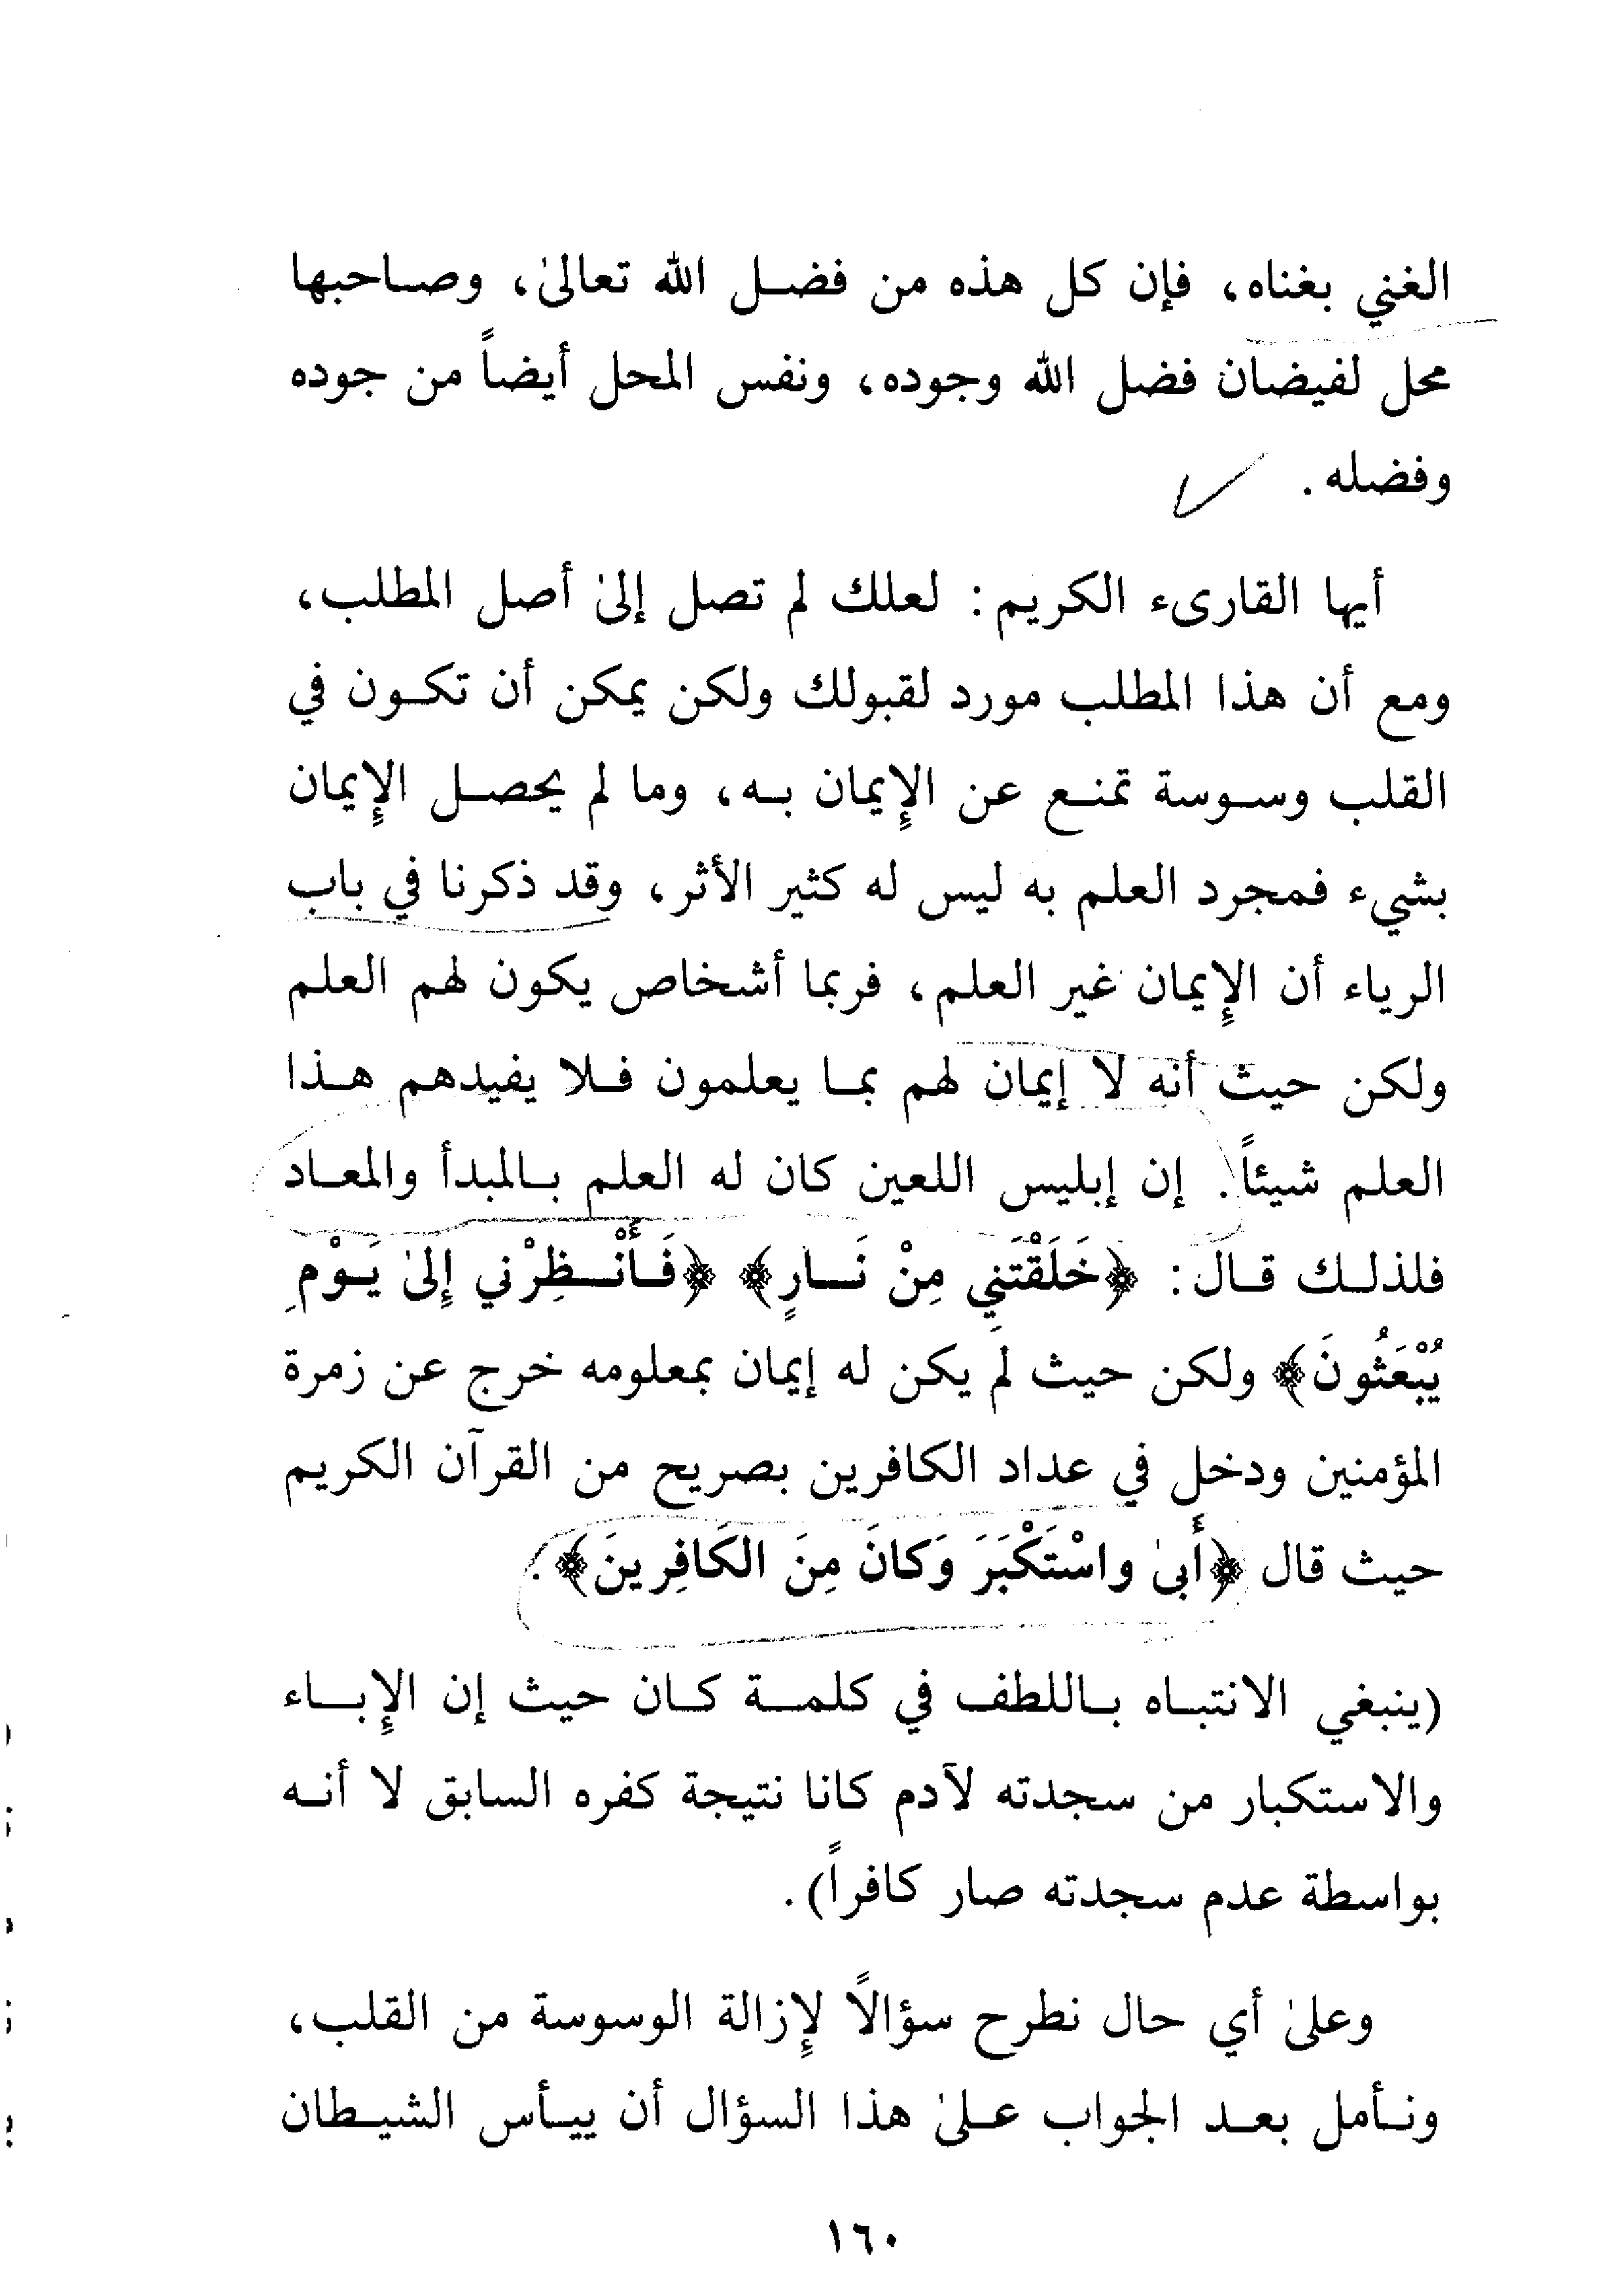 الغني بغناه، فإن كل هذه من فضل الله تعالىٰ، وصاحبها
محل لفيضان فضل الله وجوده، ونفس المحل أيضاً من جوده
وفضله .
أيها القارىء الكريم : لعلك لم تصل إلىٰ أصل المطلب،
ومع أن هذا المطلب مورد لقبولك ولكن يمكن أن تكون في
القلب وسوسة تمنع عن الإِيمان به، وما لم يحصل الإِيمان
بشيء فمجرد العلم به ليس له كثير الأثر، وقد ذكرنا في باب
الرياء أن الإِيمان غير العلم، فربما أشخاص يكون لهم العلم
ولكن حيث أنه لا إيمان لهم بما يعلمون فلا يفيدهم هذا
العلم شيئاً. إن إبليس اللعين كان له العلم بالمبدأ والمعاد
فلذلك قال : ﴿خَلَقْتَنِي مِنْ نَارٍ﴾ ﴿فَأَنْظِرْني إِلىٰ يَوْمِ
يُبْعَثُونَ﴾ ولكن حيث لَم يكن له إيمان بمعلومه خرج عن زمرة
المؤمنين ودخل في عداد الكافرين بصريح من القرآن الكريم
حيث قال ﴿أَبىٰ واسْتَكْبَرَ وَكانَ مِنَ الكَافِرينَ﴾.
(ينبغي الانتباه باللطف في كلمة كان حيث إن الإِباء
والاستكبار من سجدته لآدم كانا نتيجة كفره السابق لا أنه
بواسطة عدم سجدته صار كافراً).
وعلىٰ أي حال نطرح سؤالاً لإِزالة الوسوسة من القلب،
ونأمل بعد الجواب علىٰ هذا السؤال أن ييأس الشيطان
١٦٠